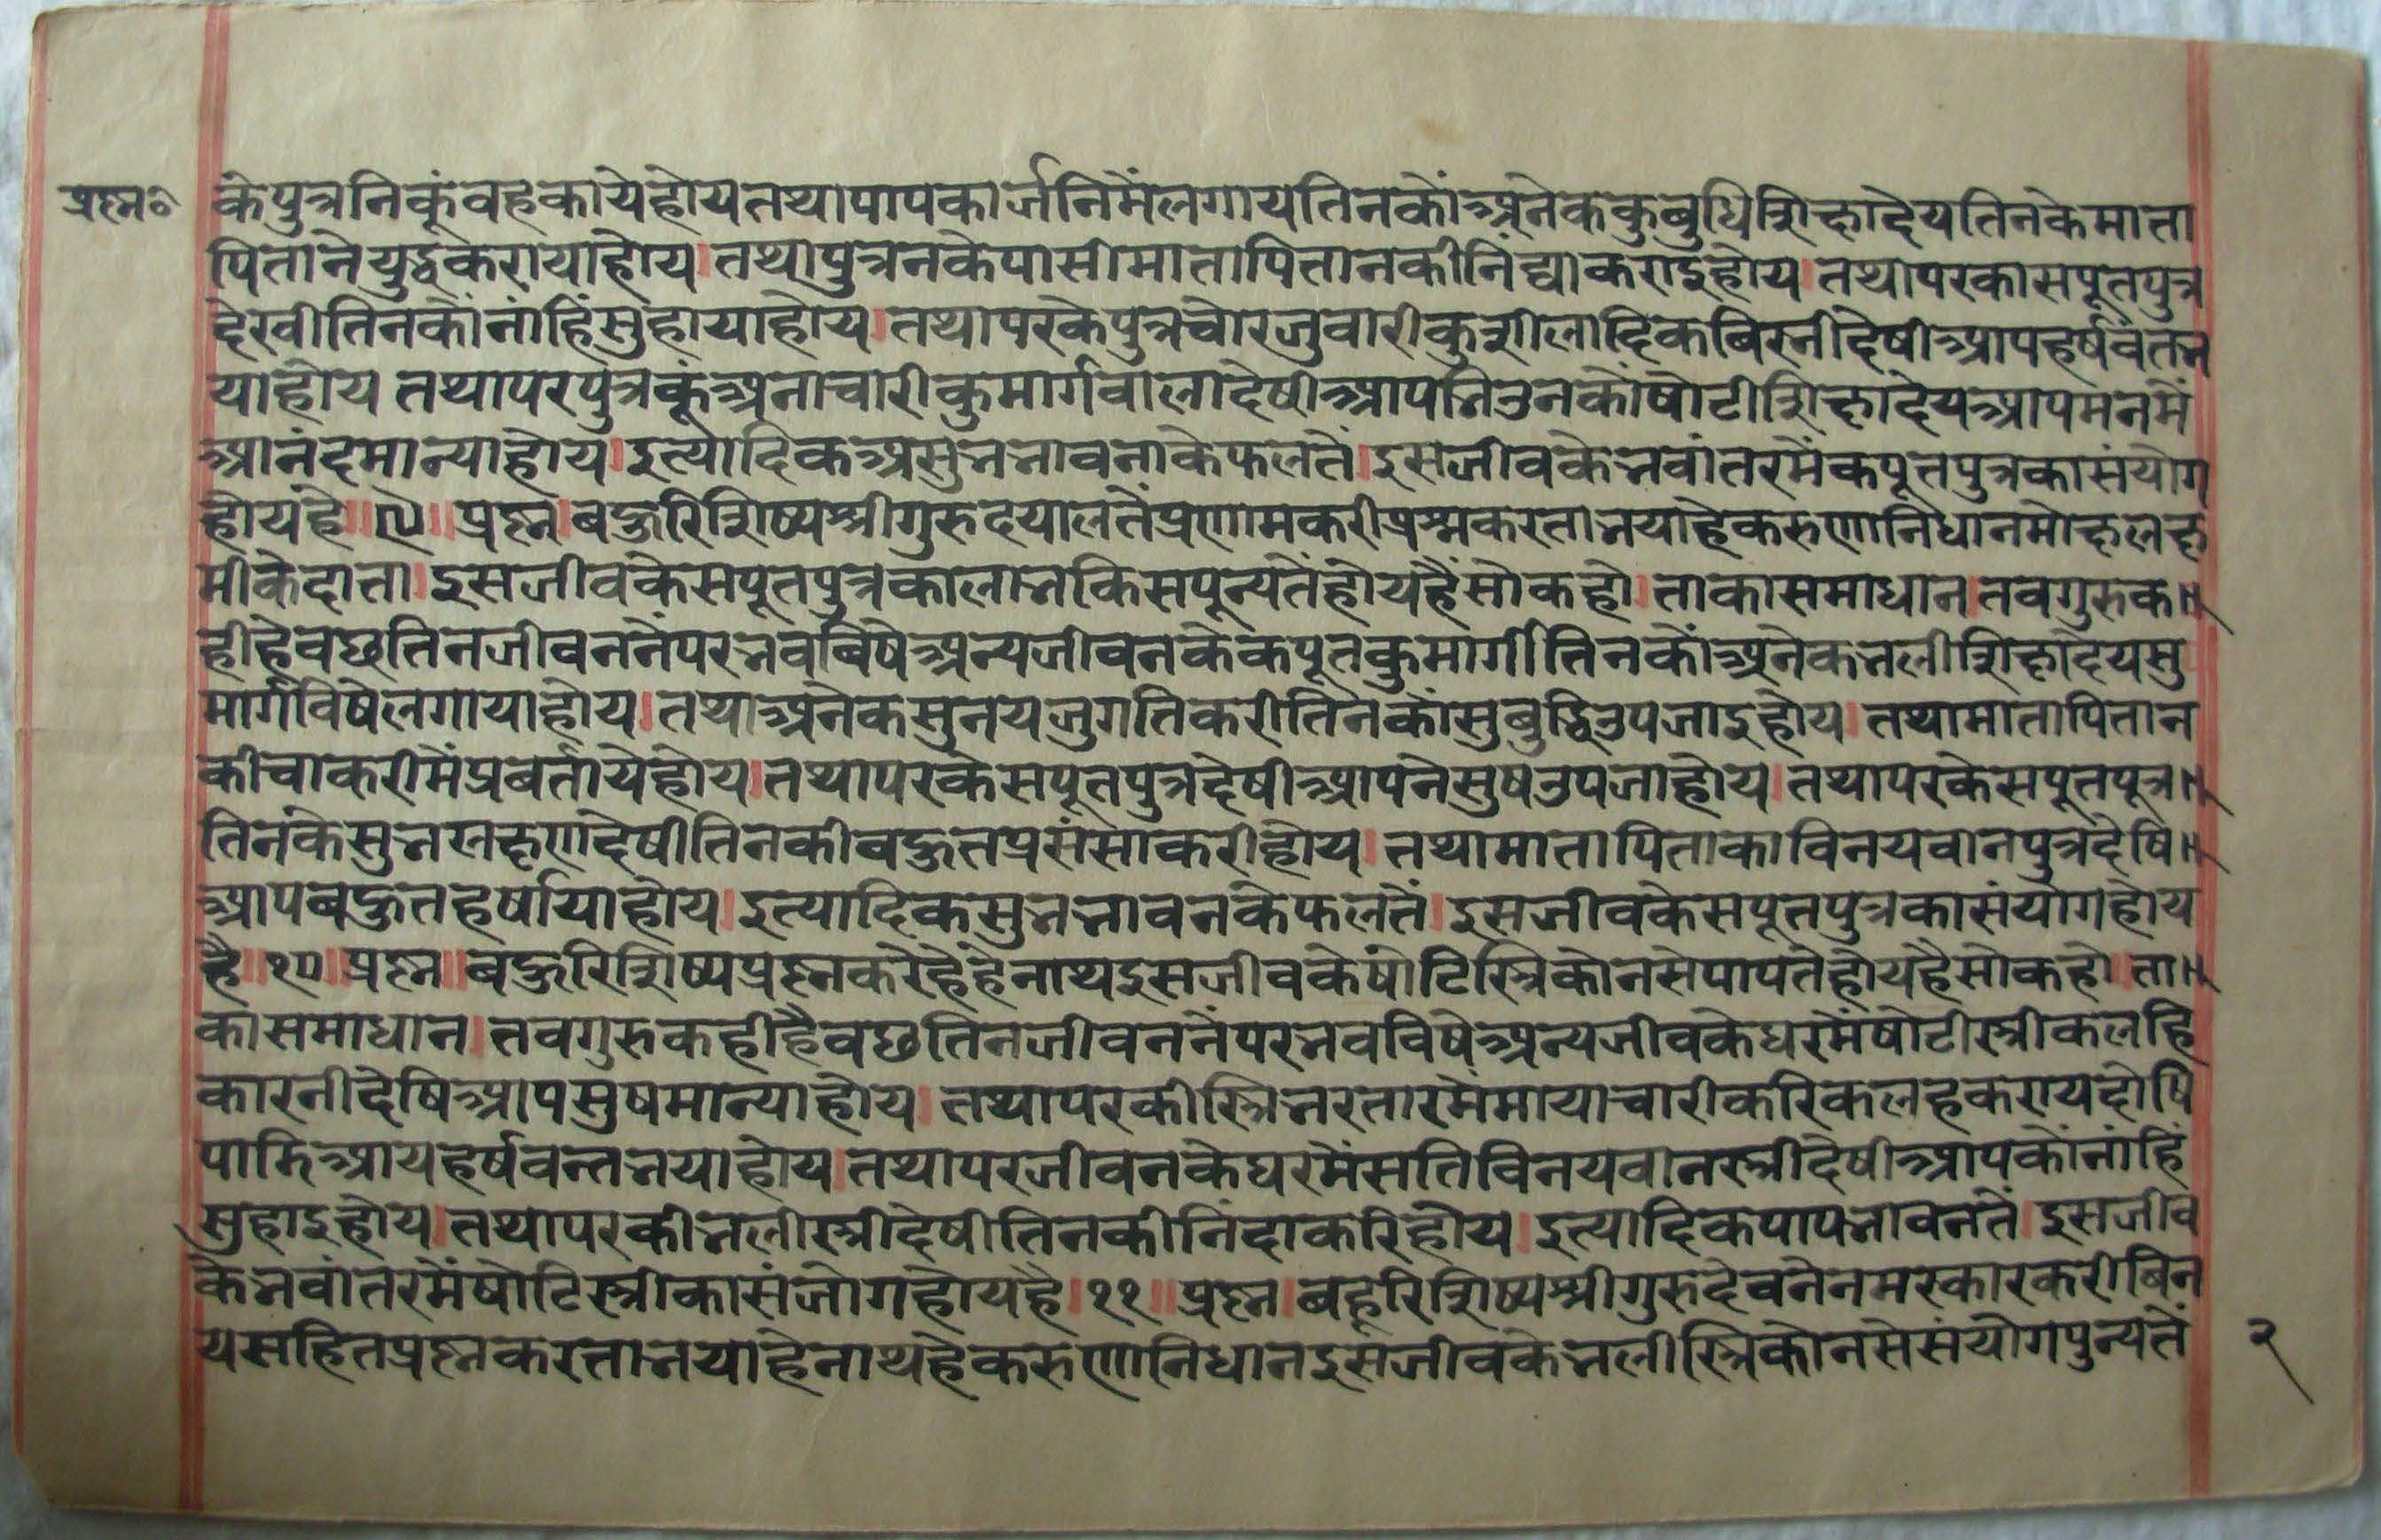 प्रश्न॰ केपुत्रनिकूंवहकायेहोयतथापापकार्जनिमैंलगायतिनकोंअनेककुबुधिशिक्षादेयतिनकेमाता
पितानेयुद्धकरायाहोय।तथापुत्रनकेपासीमातापितानकीनिंद्याकराइहोय।तथापरकासपूतपुत्र
देखीतिनकोंनांहिंसुहायाहोय।तथापरकेपुत्रचोरजुवारीकुशीलादिकबिस्नीदेषीआपहर्षवंतभ
याहोय तथापरपुत्रकूंअनाचारीकुमार्गवालादेषीआपभिउनकोंषोटीशिक्षादेयआपमनमें
आनंदमान्याहोय।इत्यादिकअसुभभावनाकेफलतें।इसजीवकेभवांतरमेंकपूतपुत्रकासंयोग
होयहै॥९॥प्रश्न।बहुरिशिष्यश्रीगुरुदयालतैंप्रणामकरीप्रश्नकरताभयाहेकरुणानिधानमोक्षलक्ष
मीकेदाता।इसजीवकेसपूतपुत्रकालाभकिसपून्यतेंहोयहैंसोकहो।ताकासमाधान।तवगुरुक॥
हीहेवछतिनजीवननेंपरभवबिषेअन्यजीवनकेकपूतकुमार्गीतिनकोंअनेकभलीशिक्षादेयसु
मार्गविषेलगायाहोय।तथाअनेकसुनयजुगतिकरीतिनकोंसुबुद्धिउपजाइहोय।तथामातापितान
कीचाकरीमेंप्रबर्तायेहोय।तथापरकेसपूतपुत्रदेषीआपनेसुषउपजाहोय।तथापरकेसपूतपूत्र॥
तिनकेसुभलक्षणदेषीतिनकीबहुतप्रसंसाकरीहोय।तथामातापिताकाविनयवानपुत्रदेषि॥
आपबहुतहर्षायाहोय।इत्यादिकसुभभावनकेफलतें।इसजीवकेसपूतपुत्रकासंयोगहोय
है॥१०॥प्रश्न॥बहुरिशिष्यप्रश्नकरेहैहेनाथइसजीवकेषोटिस्त्रिकोनसेपापतेहोयहैसोकहो।ता॥
कासमाधान।तवगुरुकहीहैवछतिनजीवननेंपरभवविषेअन्यजीवकेघरमेंषोटीस्त्रीकलहि
कारनीदेषिआपसुषमान्याहोय।तथापरकीस्त्रिभरतारमेंमायाचारीकरिकलहकरायदोषि
पामिआयहर्षवन्तभयाहोय।तथापरजीवनकेघरमेंसतिविनयवानस्त्रीदेषीआपकोंनांहिं
सुहाइहोय।तथापरकीभलीस्त्रीदेषीतिनकीनिंदाकरिहोय।इत्यादिकपापभावनतें।इसजीव
केभवांतरमेंषोटिस्त्रीकासंजोगहोयहै॥११॥प्रश्न।बहूरिशिष्यश्रीगुरुदेवनेनमस्कारकरीबिन
यसहितप्रश्नकरताभयाहेनाथहेकरुणानिधानइसजीवकेभलीस्त्रिकोनसेसंयोगपुन्यतें
२